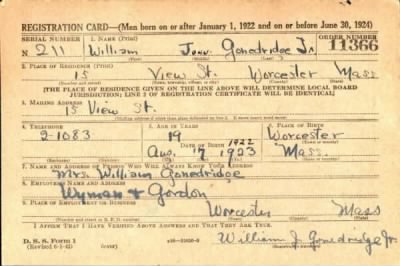 REGISTRATION CARD—(Men born on or after January 1, 1922 and on or before June 30, 1924)
SERIAL NUMBER 1. NAME (Print) ORDER NUMBER
N 211 William John Gonedridge Jr. 11366
(First) (Middle) (Last)
2. PLACE OF RESIDENCE (Print)
15 View St. Worcester Mass
(Number and street) (Town, township, village, or city) (County) (State)
[THE PLACE OF RESIDENCE GIVEN ON THE LINE ABOVE WILL DETERMINE LOCAL BOARD
JURISDICTION; LINE 2 OF REGISTRATION CERTIFICATE WILL BE IDENTICAL]
3. MAILING ADDRESS
15 View St.
4. TELEPHONE 5. AGE IN YEARS 6. PLACE OF BIRTH
2-1083 19 Worcester
DATE OF BIRTH 1922
Aug. 17 1923 Mass.
7. NAME AND ADDRESS OF PERSON WHO WILL ALWAYS KNOW YOUR ADDRESS
Mrs. William Gonedridge
8. EMPLOYER'S NAME AND ADDRESS
Wyman & Gordon
9. PLACE OF EMPLOYMENT OR BUSINESS
Worcester Mass
I AFFIRM THAT I HAVE VERIFIED ABOVE ANSWERS AND THAT THEY ARE TRUE.
D. S. S. Form 1
(over)
William J. Gonedridge Jr.